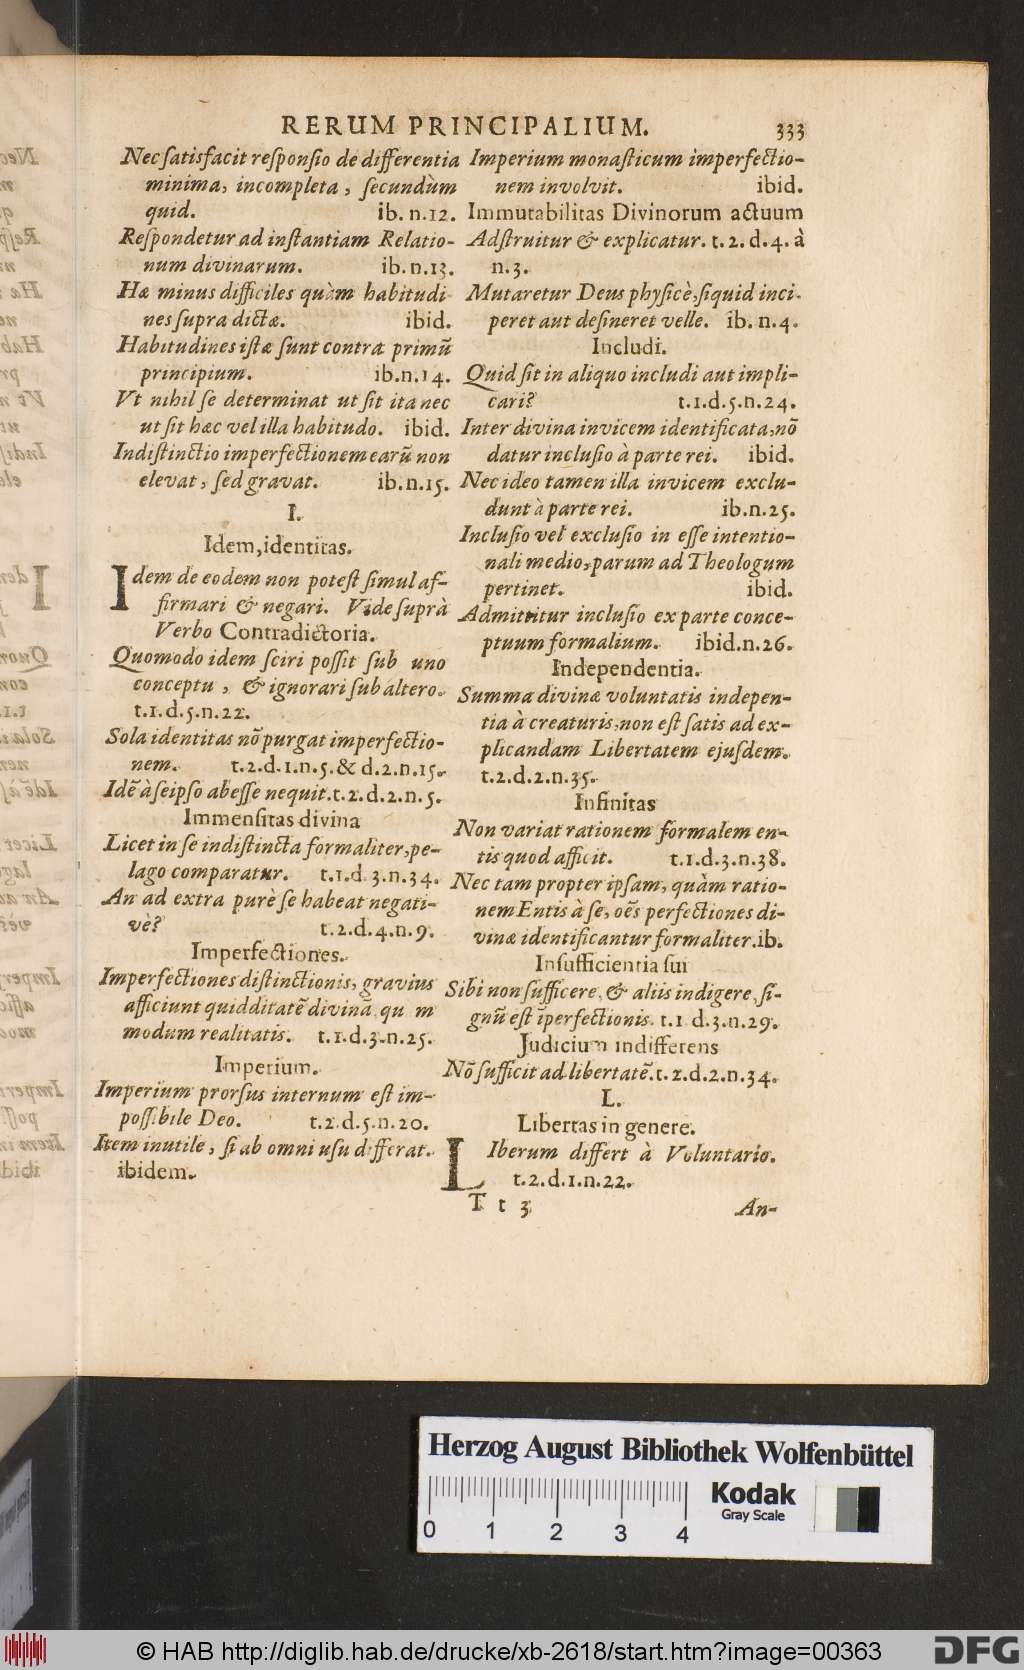 RERUM PRINCIPALIUM. 333
Nec ſatisfacit reſponſio de differentia
minima, incompleta, ſecundùm
quid. ib. n.12.
Reſpondetur ad inſtantiam Relatio-
num divinarum. ib.n.13.
Hæ minus difficiles quàm habitudi-
nes ſupra dictæ. ibid.
Habitudines iſtæ ſunt contra primũ
principium. ib.n.14.
Vt nihil ſe determinat ut ſit ita nec
ut ſit hæc vel illa habitudo. ibid.
Indiſtinctio imperfectionem earũ non
elevat, ſed gravat. ib.n.15.
I.
Idem, identitas.
Idem de eodem non poteſt ſimul af-
firmari & negari. Vide ſuprà
Verbo Contradictoria.
Quomodo idem ſciri poſſit ſub uno
conceptu, & ignorari ſub altero.
t.1.d.5.n.22.
Sola identitas nõ purgat imperfectio-
nem. t.2.d.1.n.5.& d.2.n.15.
Idẽ à ſeipſo abeſſe nequit.t.2.d.2.n.5.
Immenſitas divina
Licet in ſe indiſtincta formaliter, pe-
lago comparatur. t.1.d.3.n.34.
An ad extra purè ſe habeat negati-
vè? t.2.d.4.n.9.
Imperfectiones.
Imperfectiones diſtinctionis, gravius
afficiunt quidditatẽ divinã qu m
modum realitatis. t.1.d.3.n.25.
Imperium.
Imperium prorſus internum eſt im-
poſſibile Deo. t.2.d.5.n.20.
Item inutile, ſi ab omni uſu differat.
ibidem.
Imperium monaſticum imperfectio-
nem involvit. ibid.
Immutabilitas Divinorum actuum
Adſtruitur & explicatur. t.2.d.4.à
n.3.
Mutaretur Deus phyſicè, ſiquid inci-
peret aut deſineret velle. ib. n.4.
Includi.
Quid ſit in aliquo includi aut impli-
cari? t.1.d.5.n.24.
Inter divina invicem identificata, nõ
datur incluſio à parte rei. ibid.
Nec ideo tamen illa invicem exclu-
dunt à parte rei. ib.n.25.
Incluſio vel excluſio in eſſe intentio-
nali medio, parum ad Theologum
pertinet. ibid.
Admittitur incluſio ex parte conce-
ptuum formalium. ibid.n.26.
Independentia.
Summa divinæ voluntatis indepen-
tia à creaturis, non eſt ſatis ad ex-
plicandam Libertatem ejuſdem.
t.2.d.2.n.35.
Infinitas
Non variat rationem formalem en-
tis quod afficit. t.1.d.3.n.38.
Nec tam propter ipſam, quàm ratio-
nem Entis à ſe, oẽs perfectiones di-
vinæ identificantur formaliter.ib.
Inſufficientia ſui
Sibi non ſufficere, & aliis indigere, ſi-
gnũ eſt ĩperfectionis. t.1.d.3.n.29.
Judicium indifferens
Nõ ſufficit ad libertatẽ.t.2.d.2.n.34.
L.
Libertas in genere.
Liberum differt à Voluntario.
t.2.d.1.n.22.
T t 3 An-
Herzog August Bibliothek Wolfenbüttel
0 1 2 3 4
Kodak
Gray Scale
© HAB http://diglib.hab.de/drucke/xb-2618/start.htm?image=00363
DFG